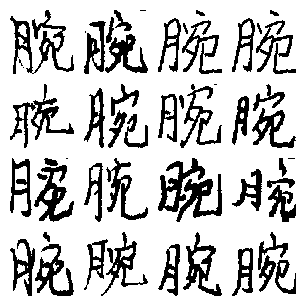 腕腕腕腕
腕腕腕腕
腕腕腕腕
腕腕腕腕